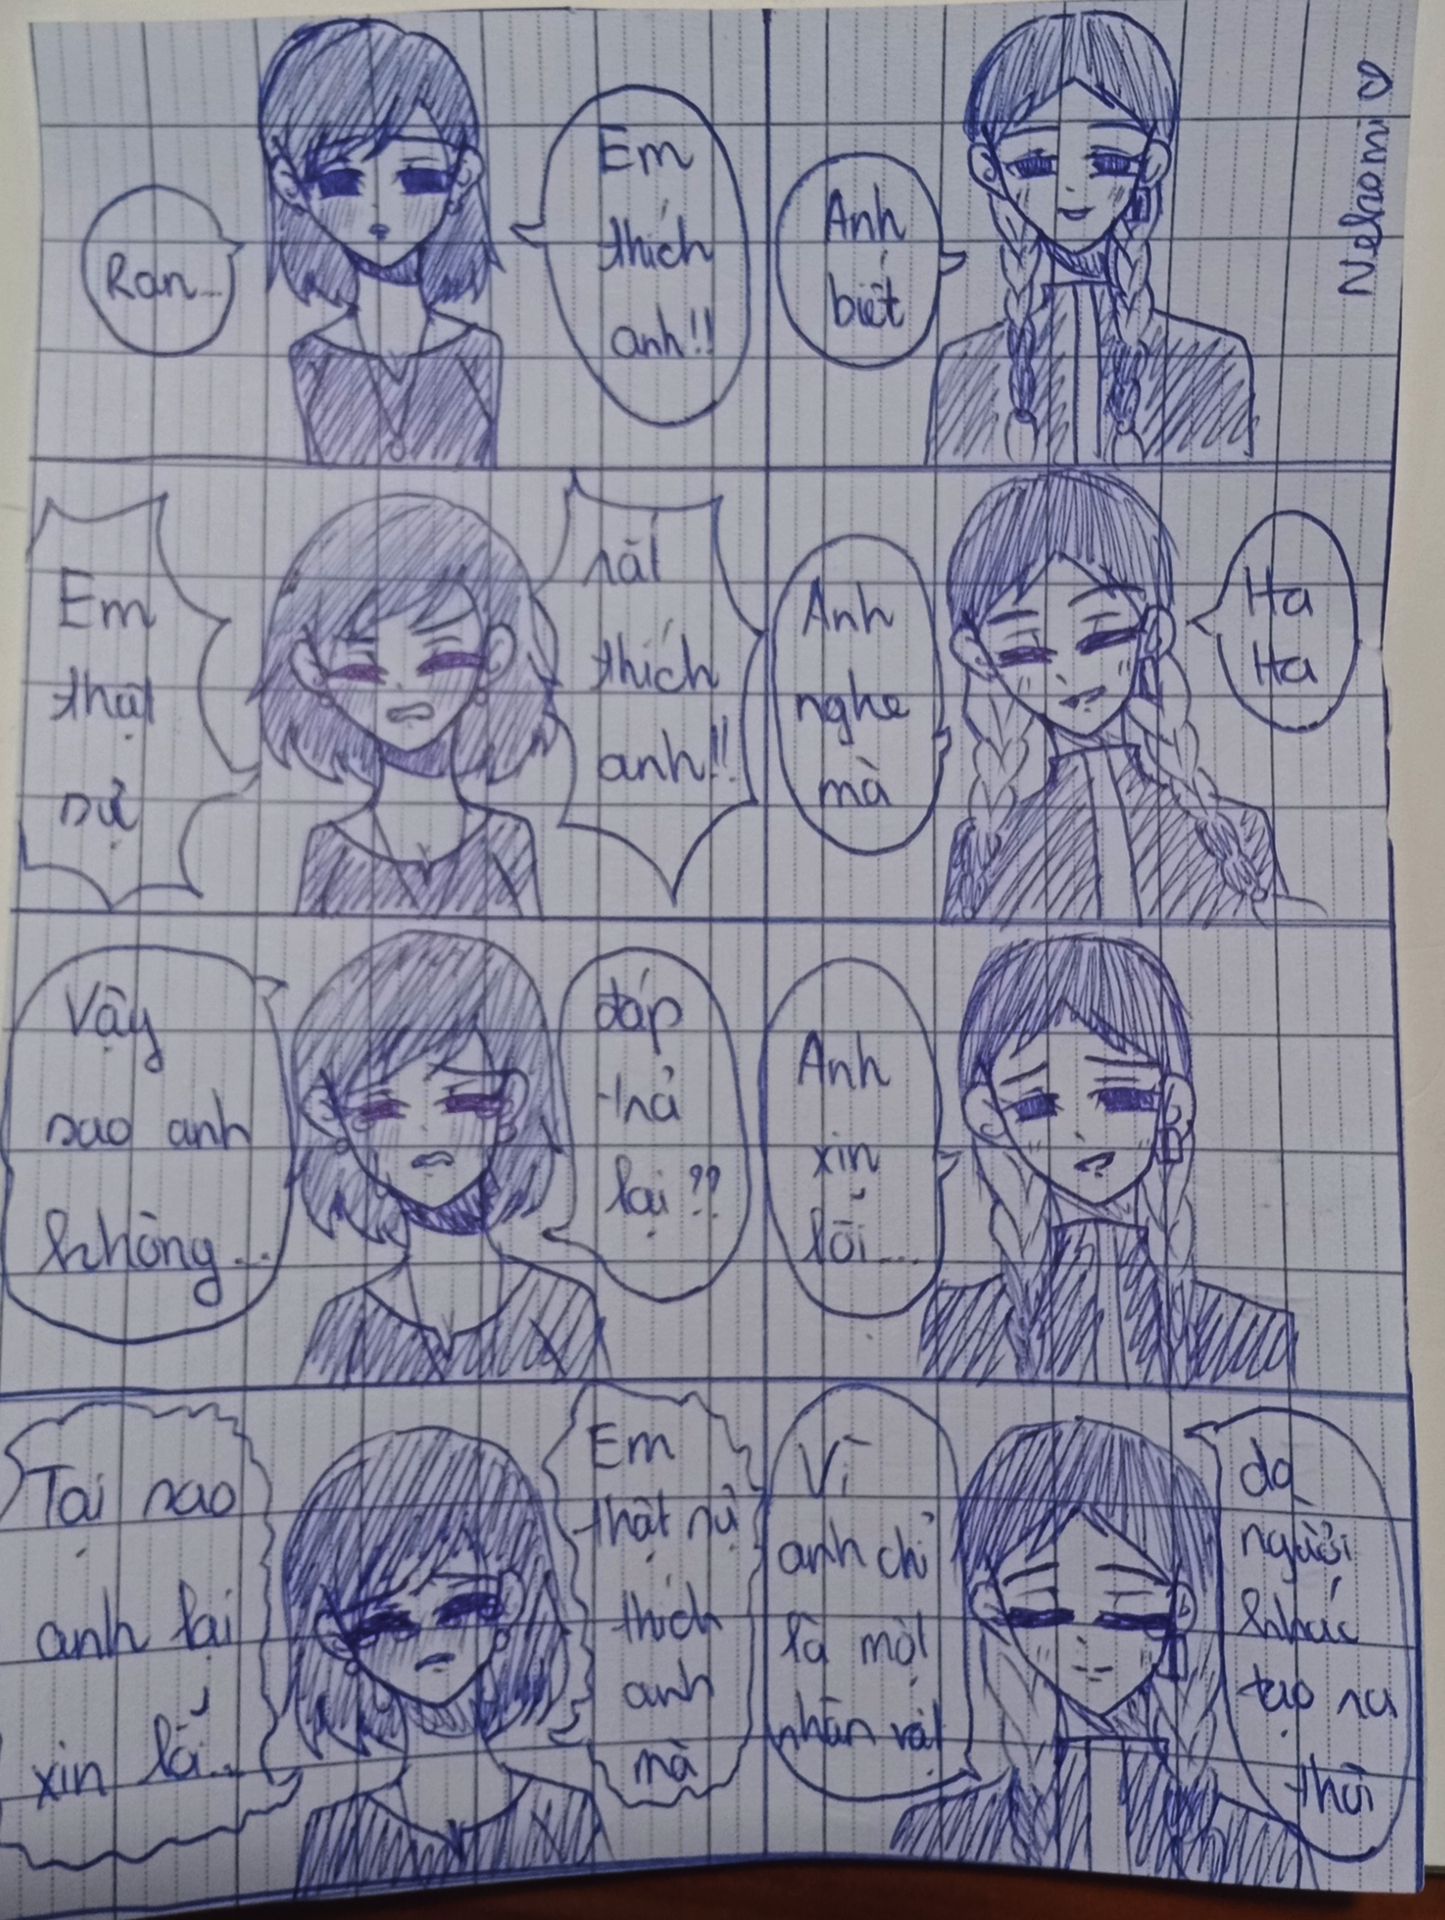 Ran...
Em
thích
anh!!
Anh
biết
Nekomi
Em
thật
sự
rất
thích
anh!!
Anh
nghe
mà
Ha
Ha
Vậy
sao anh
không...
đáp
trả
lại??
Anh
xin
lỗi...
Tại sao
anh lại
xin lỗi...
Em
thật sự
thích
anh
mà
Vì
anh chỉ
là một
nhân vật
do
người
khác
tạo ra
thôi